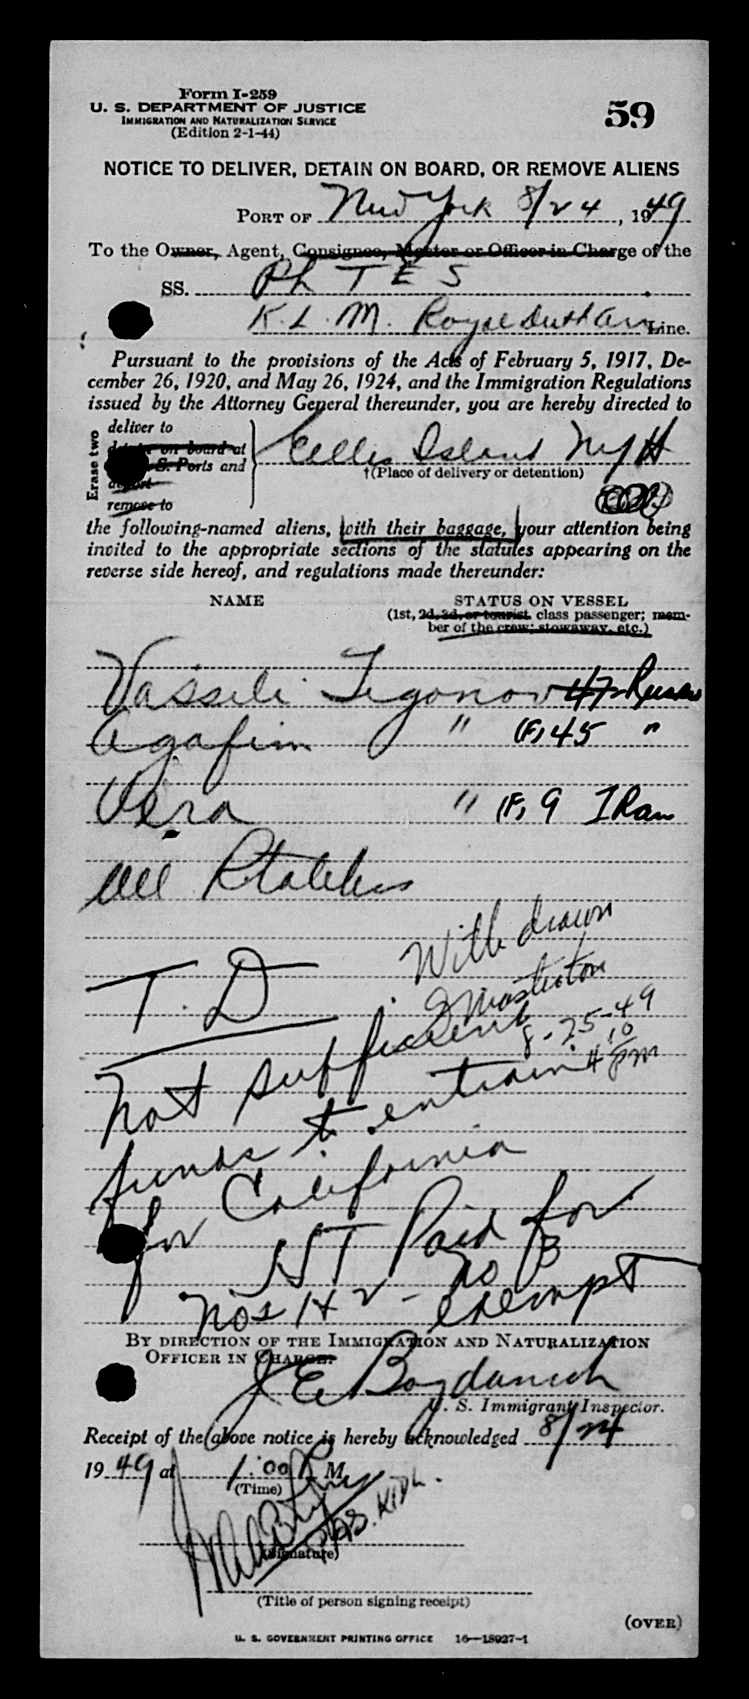 Form I-259
U. S. DEPARTMENT OF JUSTICE
IMMIGRATION AND NATURALIZATION SERVICE
(Edition 2-1-44)
59
NOTICE TO DELIVER, DETAIN ON BOARD, OR REMOVE ALIENS
PORT OF New York 8/24, 1949
To the Owner, Agent, Consignee, Master or Officer in Charge of the
SS. Ph T E S
K. L. M. Royal Dutch Line.
Pursuant to the provisions of the Acts of February 5, 1917, De-
cember 26, 1920, and May 26, 1924, and the Immigration Regulations
issued by the Attorney General thereunder, you are hereby directed to
Erase two
deliver to
detain on board at
U. S. Ports and
deport
remove to
Ellis Island NYH
†(Place of delivery or detention)
the following-named aliens, with their baggage, your attention being
invited to the appropriate sections of the statutes appearing on the
reverse side hereof, and regulations made thereunder:
NAME STATUS ON VESSEL
(1st, 2d, 3d, or tourist class passenger; mem-
ber of the crew; stowaway, etc.)
Vassili Tegonov 47 Russ
Agafim " (F) 45 "
Vera " (F) 9 IRan
All Stateless
T. D
Withdrawn
8-25-49
4 10 pm
Not sufficient
funds to entrain
for California
HT Paid for
Nos 1 & 2 - No 3
exempt
BY DIRECTION OF THE IMMIGRATION AND NATURALIZATION
OFFICER IN CHARGE:
J E Bogdanich
U. S. Immigrant Inspector.
Receipt of the above notice is hereby acknowledged 8/24
1949 at 1:00 P M
(Time)
(Signature)
(Title of person signing receipt)
(OVER)
U. S. GOVERNMENT PRINTING OFFICE 16—18927-1